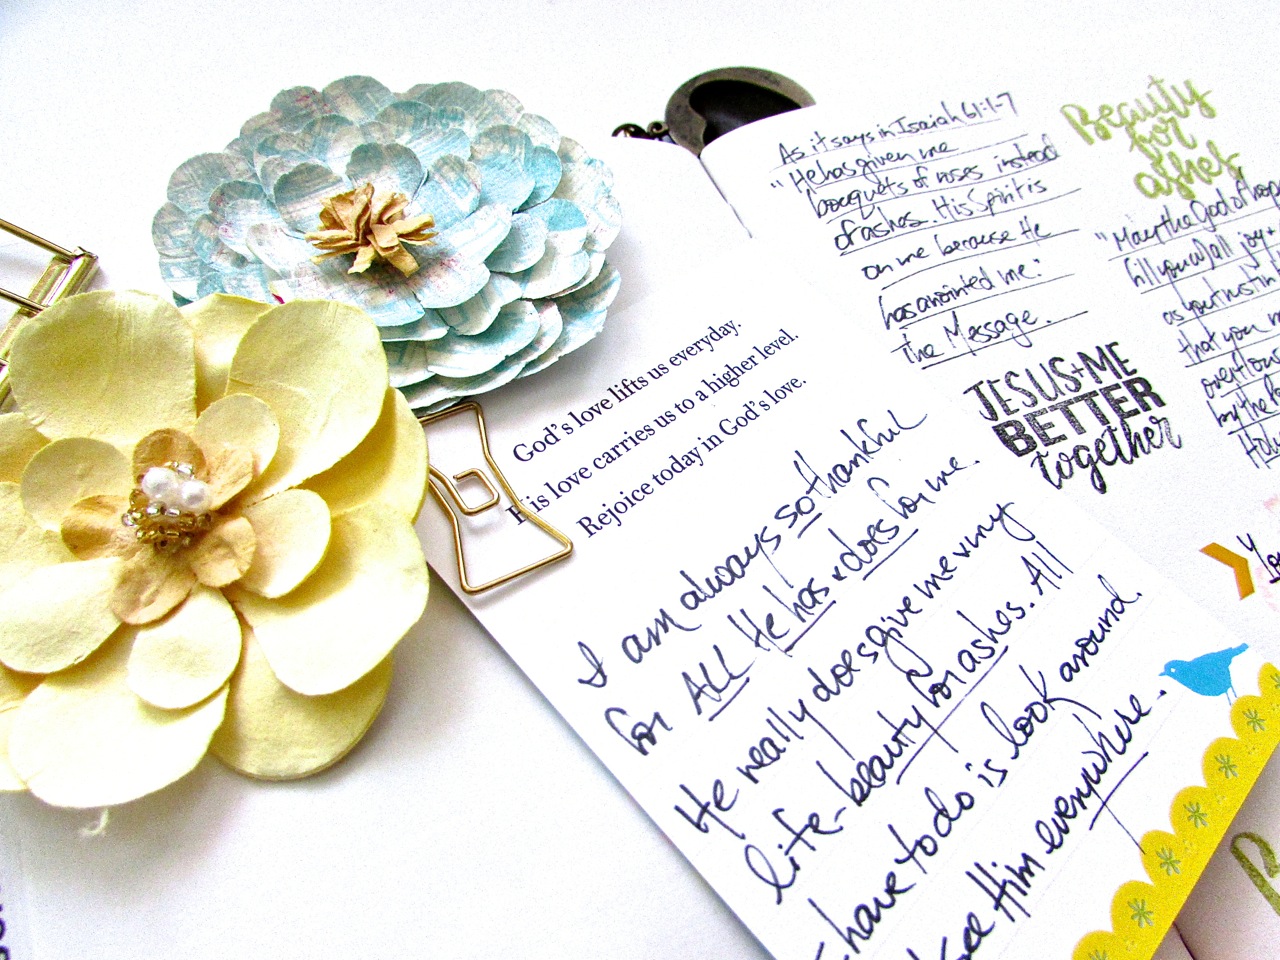 As it says in Isaiah 61:1-7
"He has given me
bouquets of roses instead
of ashes. His Spirit is
on me because He
has anointed me."
the Message.
JESUS+ME
BETTER
together
Beauty
for
ashes
"May the God of hope
fill you w/ all joy +
as you trust in
that you m
overflow
by the
Holy
God's love lifts us everyday.
His love carries us to a higher level.
Rejoice today in God's love.
I am always so thankful
for ALL He has + does for me.
He really does give me in my
life - beauty for ashes. All
I have to do is look around.
see Him everywhere.